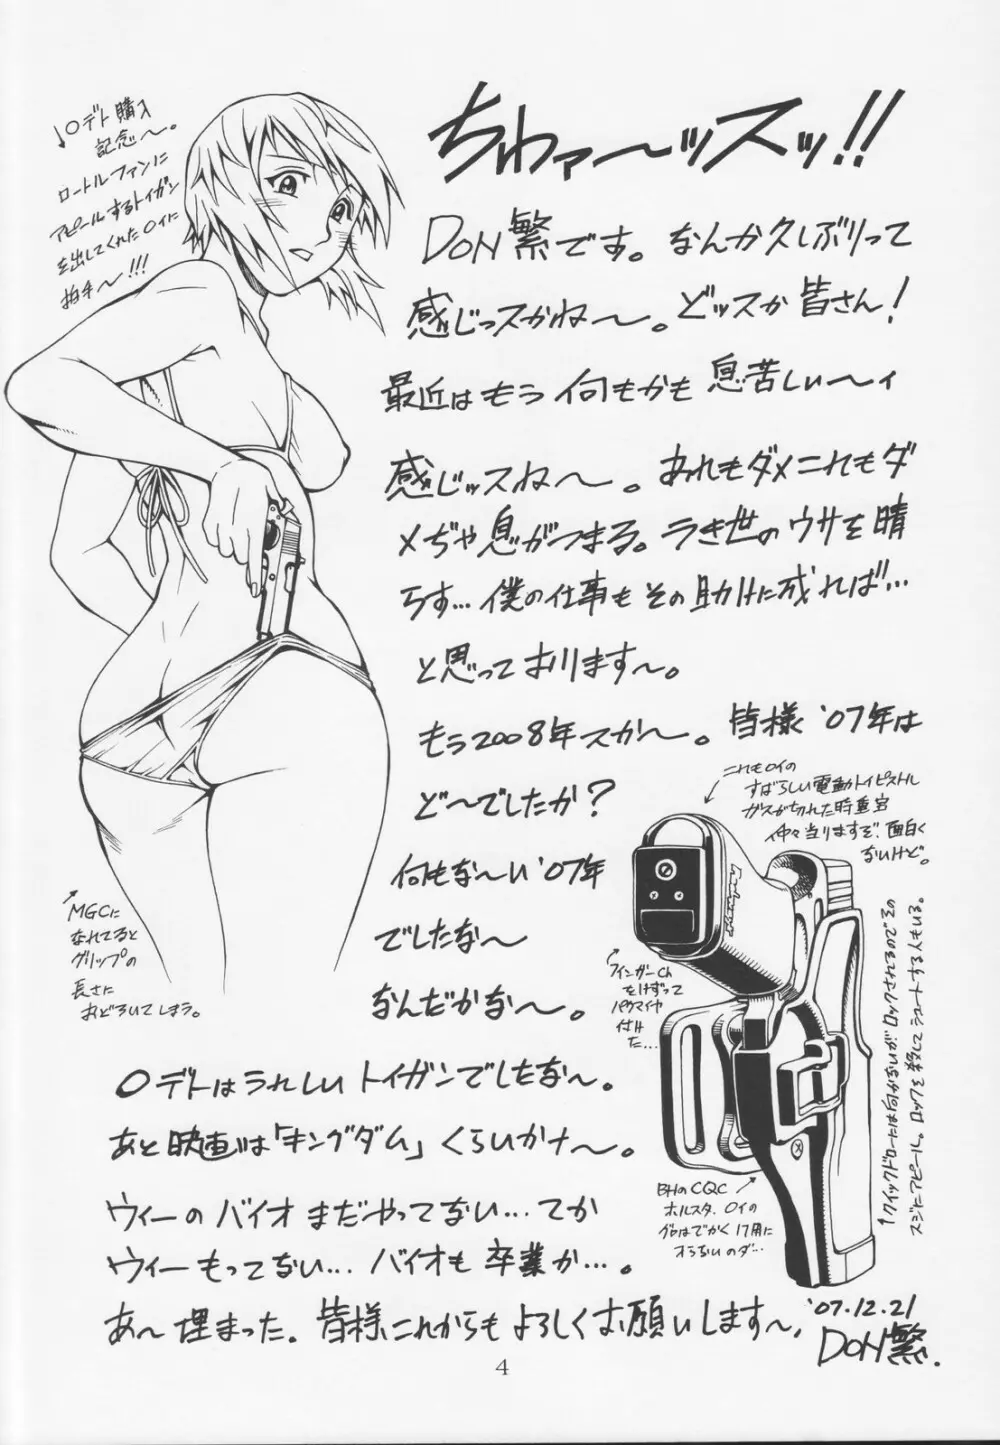 ちわァ〜ッスッ!!
DON繁です。なんか久しぶりって
感じっスかね〜。どッスか皆さん!
最近はもう何もかも息苦しぃ〜ィ
感じッスね〜。あれもダメこれもダ
メぢゃ息がつまる。うき世のウサを晴
らす…僕の仕事もその助けに成れば…
と思っております〜。
もう2008年スか〜。皆様'07年は
ど〜でしたか?
何もな〜い'07年
でしたな〜
なんだかな〜。
○デトはうれしいトイガンでしたな〜。
あと映画は「キングダム」くらいかナ〜。
ウィーのバイオまだやってない…てか
ウィーもってない… バイオも卒業か…。
あ〜埋まった。皆様、これからもよろしくお願いします〜、
'07.12.21
DON繁.
↓○デト購入
記念〜。
ロートルファンに
アピールするトイガン
を出してくれた○イに
拍手〜!!!
MGCに
なれてると
グリップの
長さに
おどろいてしまう。
これも○イの
すばらしい電動トイピストル
ガスが切れた時重宝
仲々当りますぞ、面白く
ないけど。
フィンガーCh
をけずって
パクマイヤ
付け
た…
BHのCQC
ホルスタ、○イの
グロはでかく17用に
入らないのダ…
↑クイックドローには向かないがロックされるのでその
スジにアピール。ロックを殺してシュートする人もいる。
4